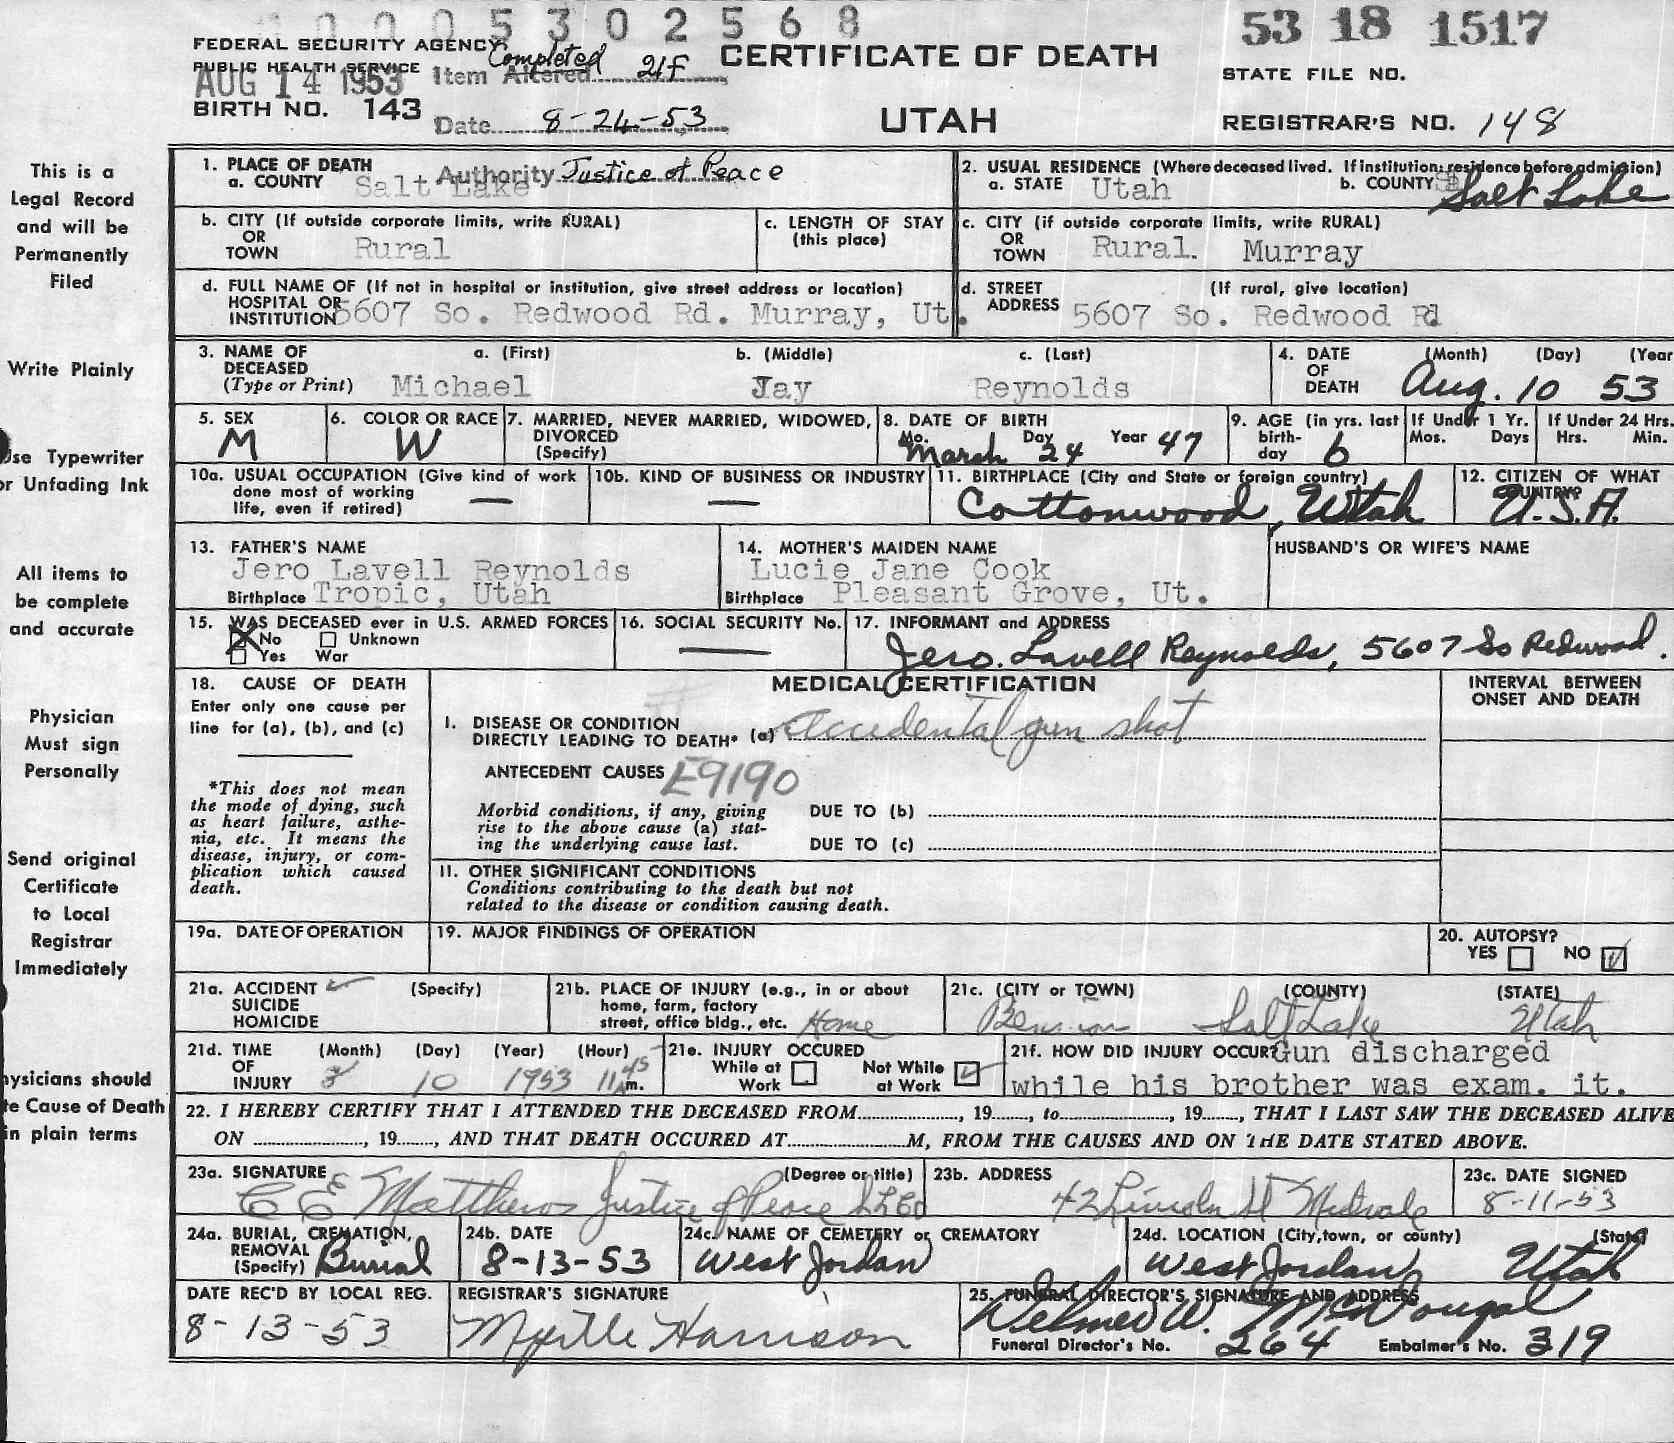 0005302568
53 18 1517
FEDERAL SECURITY AGENCY
PUBLIC HEALTH SERVICE
AUG 14 1953
Item Altered Completed 21f
CERTIFICATE OF DEATH
STATE FILE NO.
BIRTH NO. 143
Date 8-24-53
UTAH
REGISTRAR'S NO. 148
This is a
Legal Record
and will be
Permanently
Filed
Write Plainly
Use Typewriter
or Unfading Ink
All items to
be complete
and accurate
Physician
Must sign
Personally
Send original
Certificate
to Local
Registrar
Immediately
Physicians should
Cause of Death
in plain terms
1. PLACE OF DEATH
a. COUNTY Salt Lake
Authority Justice of Peace
2. USUAL RESIDENCE (Where deceased lived. If institution: residence before admission)
a. STATE Utah b. COUNTY Salt Lake
b. CITY (If outside corporate limits, write RURAL)
OR
TOWN Rural
c. LENGTH OF STAY
(this place)
c. CITY (if outside corporate limits, write RURAL)
OR
TOWN Rural. Murray
d. FULL NAME OF (If not in hospital or institution, give street address or location)
HOSPITAL OR
INSTITUTION 5607 So. Redwood Rd. Murray, Ut.
d. STREET (If rural, give location)
ADDRESS 5607 So. Redwood Rd
3. NAME OF a. (First) b. (Middle) c. (Last)
DECEASED
(Type or Print) Michael Jay Reynolds
4. DATE (Month) (Day) (Year
OF
DEATH Aug. 10 53
5. SEX
M
6. COLOR OR RACE
W
7. MARRIED, NEVER MARRIED, WIDOWED,
DIVORCED
(Specify)
8. DATE OF BIRTH
Mo. Day Year
March 24 47
9. AGE (in yrs. last
birth-
day 6
If Under 1 Yr.
Mos. Days
If Under 24 Hrs.
Hrs. Min.
10a. USUAL OCCUPATION (Give kind of work
done most of working
life, even if retired) —
10b. KIND OF BUSINESS OR INDUSTRY
—
11. BIRTHPLACE (City and State or foreign country)
Cottonwood, Utah
12. CITIZEN OF WHAT
COUNTRY?
U.S.A.
13. FATHER'S NAME
Jero Lavell Reynolds
Birthplace Tropic, Utah
14. MOTHER'S MAIDEN NAME
Lucie Jane Cook
Birthplace Pleasant Grove, Ut.
HUSBAND'S OR WIFE'S NAME
15. WAS DECEASED ever in U.S. ARMED FORCES
No Unknown
Yes War
16. SOCIAL SECURITY No.
—
17. INFORMANT and ADDRESS
Jero. Lavell Reynolds, 5607 So Redwood.
18. CAUSE OF DEATH
Enter only one cause per
line for (a), (b), and (c)
*This does not mean
the mode of dying, such
as heart failure, asthe-
nia, etc. It means the
disease, injury, or com-
plication which caused
death.
MEDICAL CERTIFICATION
I. DISEASE OR CONDITION
DIRECTLY LEADING TO DEATH* (a) accidental gun shot
ANTECEDENT CAUSES E9190
Morbid conditions, if any, giving
rise to the above cause (a) stat-
ing the underlying cause last.
DUE TO (b)
DUE TO (c)
11. OTHER SIGNIFICANT CONDITIONS
Conditions contributing to the death but not
related to the disease or condition causing death.
INTERVAL BETWEEN
ONSET AND DEATH
19a. DATE OF OPERATION
19. MAJOR FINDINGS OF OPERATION
20. AUTOPSY?
YES NO ✓
21a. ACCIDENT ✓ (Specify)
SUICIDE
HOMICIDE
21b. PLACE OF INJURY (e.g., in or about
home, farm, factory
street, office bldg., etc. Home
21c. (CITY or TOWN) (COUNTY) (STATE)
Bennion Salt Lake Utah
21d. TIME (Month) (Day) (Year) (Hour)
OF
INJURY 8 10 1953 11 45 m.
21e. INJURY OCCURED
While at
Work
Not While
at Work ✓
21f. HOW DID INJURY OCCUR? Gun discharged
while his brother was exam. it.
22. I HEREBY CERTIFY THAT I ATTENDED THE DECEASED FROM, 19, to, 19, THAT I LAST SAW THE DECEASED ALIVE
ON, 19, AND THAT DEATH OCCURED AT M, FROM THE CAUSES AND ON THE DATE STATED ABOVE.
23a. SIGNATURE (Degree or title)
C E Matthews Justice of Peace
23b. ADDRESS
42 Lincoln St Midvale
23c. DATE SIGNED
8-11-53
24a. BURIAL, CREMATION,
REMOVAL
(Specify) Burial
24b. DATE
8-13-53
24c. NAME OF CEMETERY or CREMATORY
West Jordan
24d. LOCATION (City, town, or county) (State)
West Jordan, Utah
DATE REC'D BY LOCAL REG.
8-13-53
REGISTRAR'S SIGNATURE
Myrtle Harrison
25. FUNERAL DIRECTOR'S SIGNATURE AND ADDRESS
W. McDougal
Funeral Director's No. 264 Embalmer's No. 319